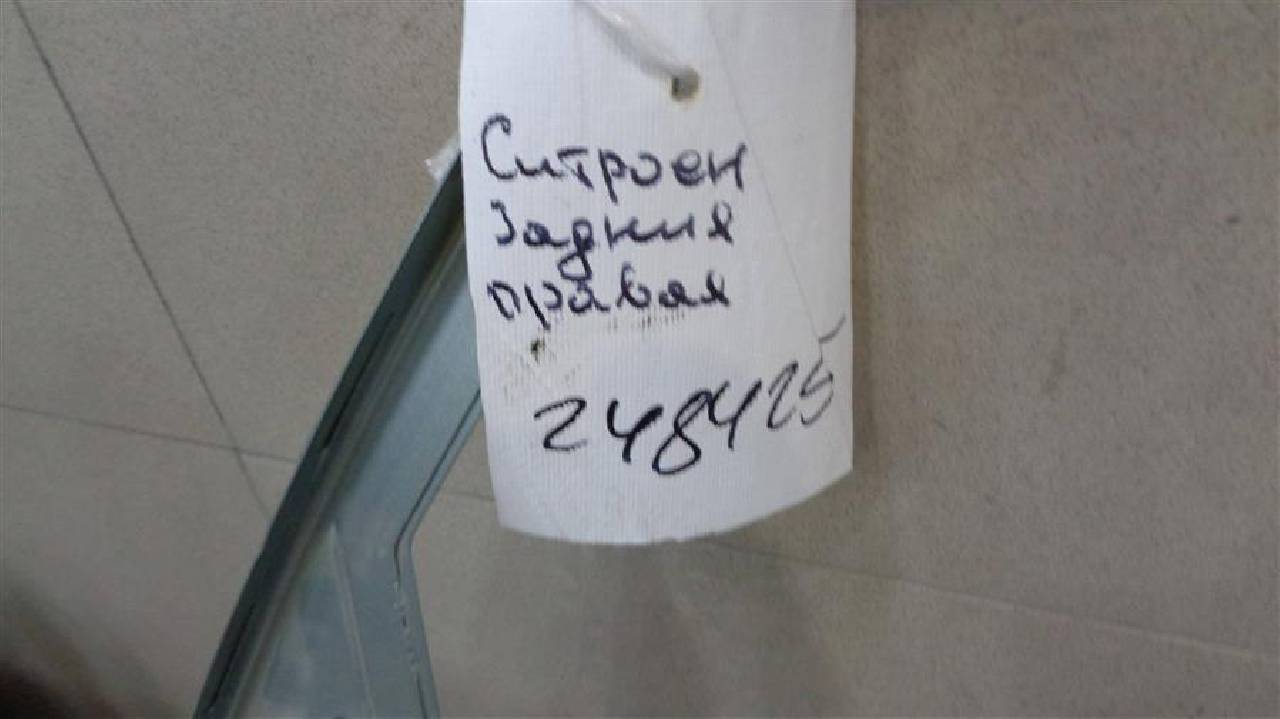 Ситроен
Задния
правая
248425